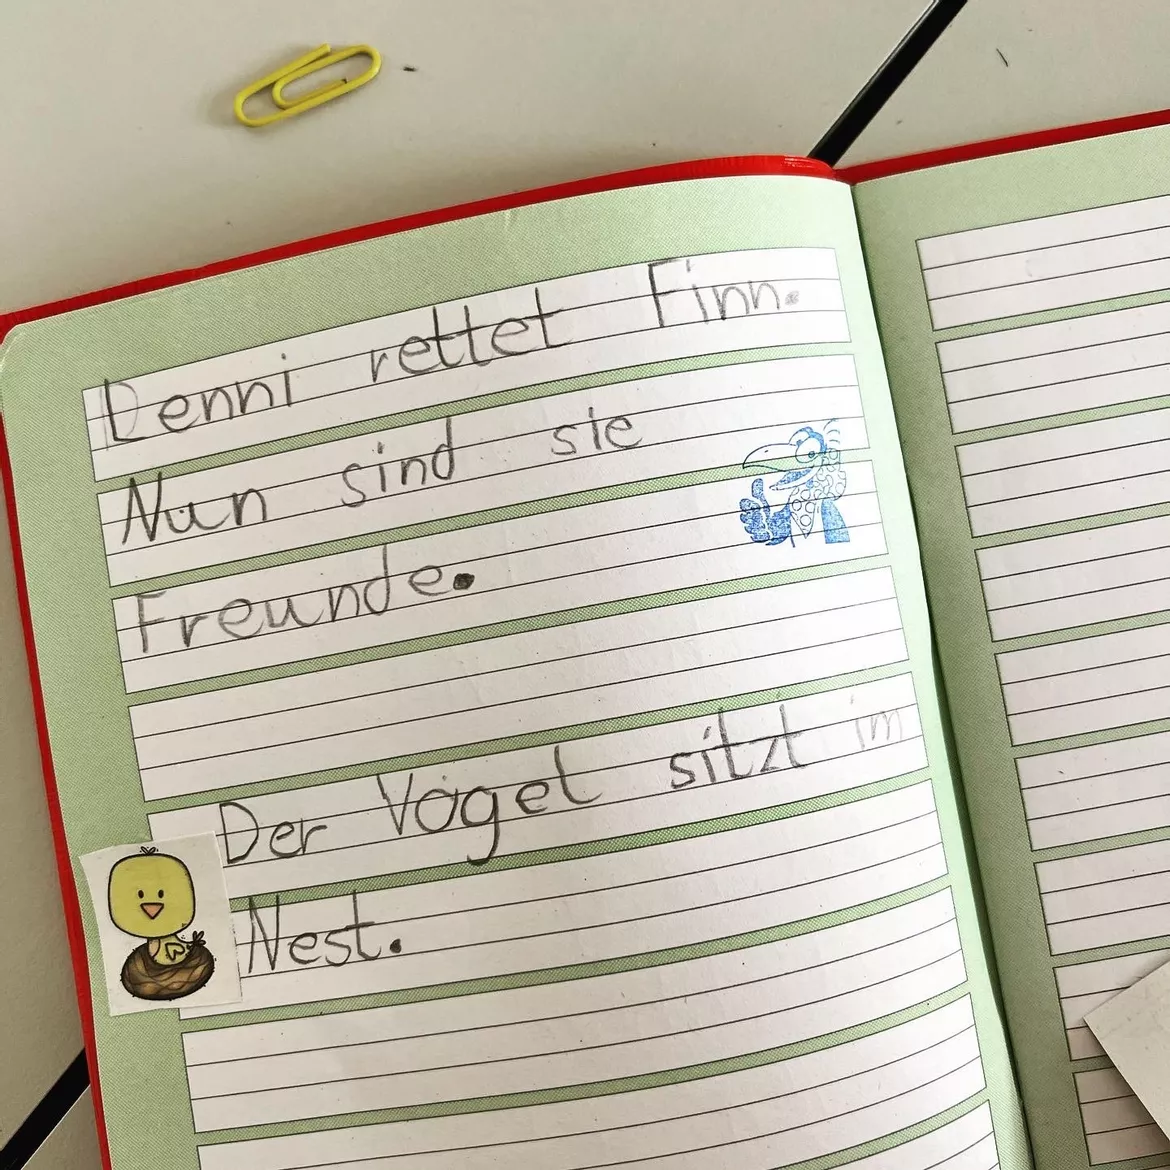 Denni rettet Finn.
Nun sind sie
Freunde.
Der Vogel sitzt im
Nest.